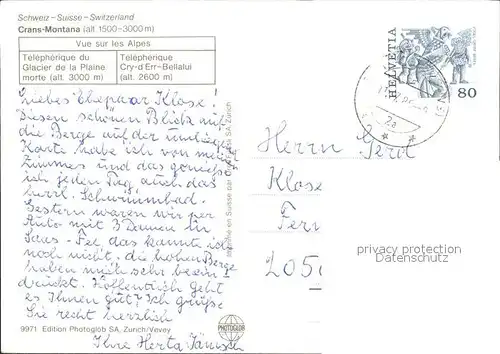 Schweiz - Suisse - Switzerland
Crans-Montana (alt 1500-3000 m)
Vue sur les Alpes
Téléphérique du
Glacier de la Plaine
morte (alt. 3000 m)
Télépherique
Cry-d Err-Bellalui
(alt. 2600 m)
Liebes Ehepaar Klose!
Diesen schönen Blick auf
die Berge auf der umliegen
Karte habe ich von mein
Zimmer und das genieße
ich jeden Tag, auch das
herrl. Schwimmbad.
Gestern waren wir per
Auto mit 3 Damen in
Saas-Fee das kannte ich
noch nicht. die hohen Berge
haben mich sehr beein-
druckt. Hoffentlich geht
es Ihnen gut? Ich grüße
Sie recht herzlich
Ihre Herta Jänisch
9971 Edition Photoglob SA, Zurich/Vevey
PHOTOGLOB
HELVETIA
80
Herrn Geril
Klose
Ferr
205
privacy protection
Datenschutz